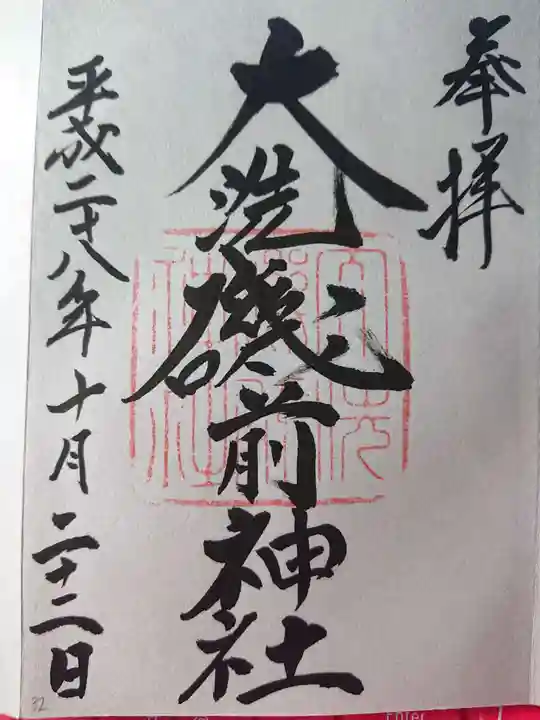 奉拝
大洗磯前神社
平成二十八年十月二十二日
32
Enter